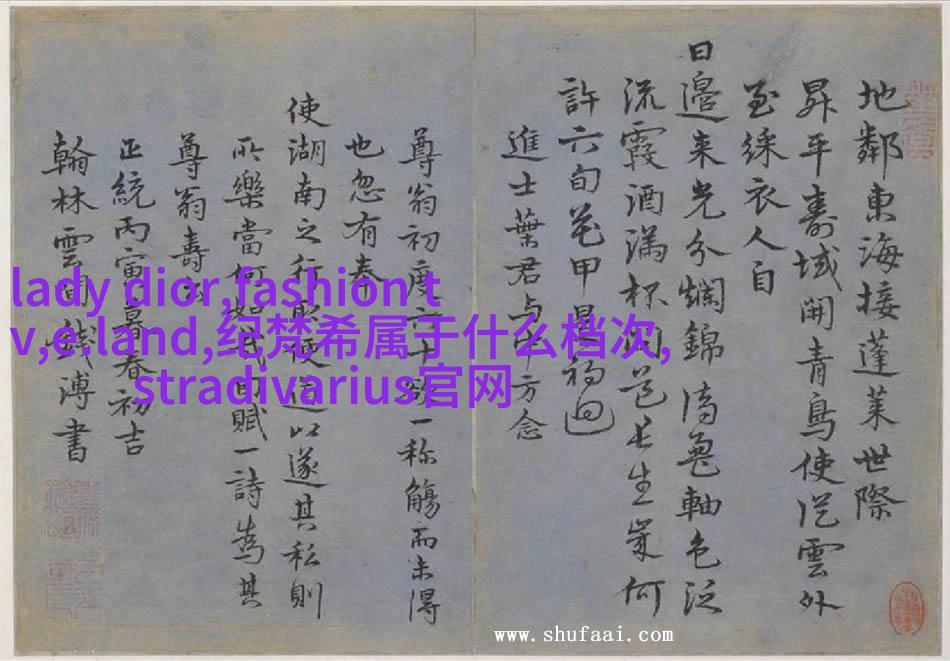 地鄰東海接蓬萊世際
昇平壽域開青鳥使從雲外
至綵衣人自
日邊來光分爛錦鳧軸色泛
流霞酒滿杯苑長生策何
許六旬花甲是初迴
進士葉君与中方念
尊翁初度六十欲一称觴而未得
也忽有奉
使湖南之行取便道以遂其私則
所樂當何如哉因賦一詩為其
尊翁壽云
正統丙寅暮春初吉
翰林雲間錢溥書
lady dior,fashion t
v,e.land,纪梵希属于什么档次,
stradivarius官网
www.shufaai.com